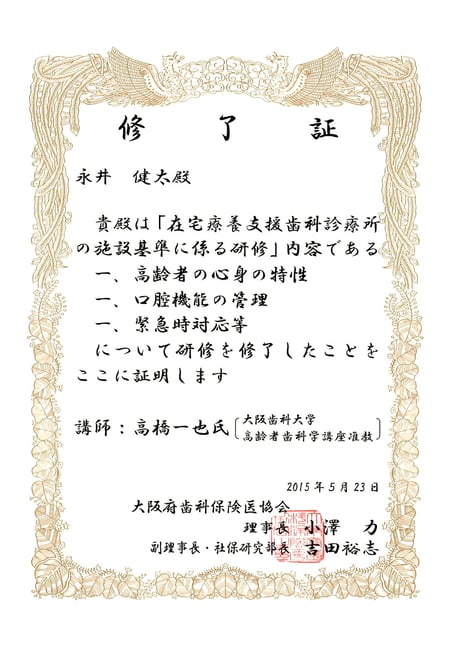 修了証
永井 健太殿
貴殿は「在宅療養支援歯科診療所
の施設基準に係る研修」内容である
一、高齢者の心身の特性
一、口腔機能の管理
一、緊急時対応等
について研修を修了したことを
ここに証明します
講師：高橋一也氏〔大阪歯科大学
高齢者歯科学講座准教〕
2015年5月23日
大阪府歯科保険医協会
理事長 小澤 力
副理事長・社保研究部長 吉田裕志